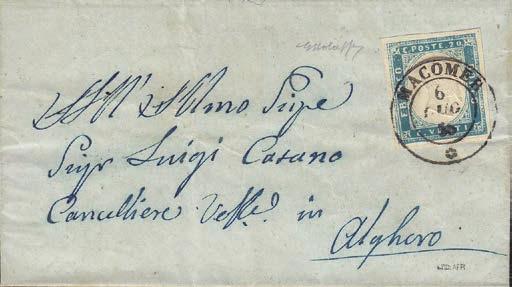 C. POSTE. 20
MACOMER
6
LUG
All' Illmo Sigre
Sigr Luigi Casano
Cancelliere Vesc.e in
Alghero